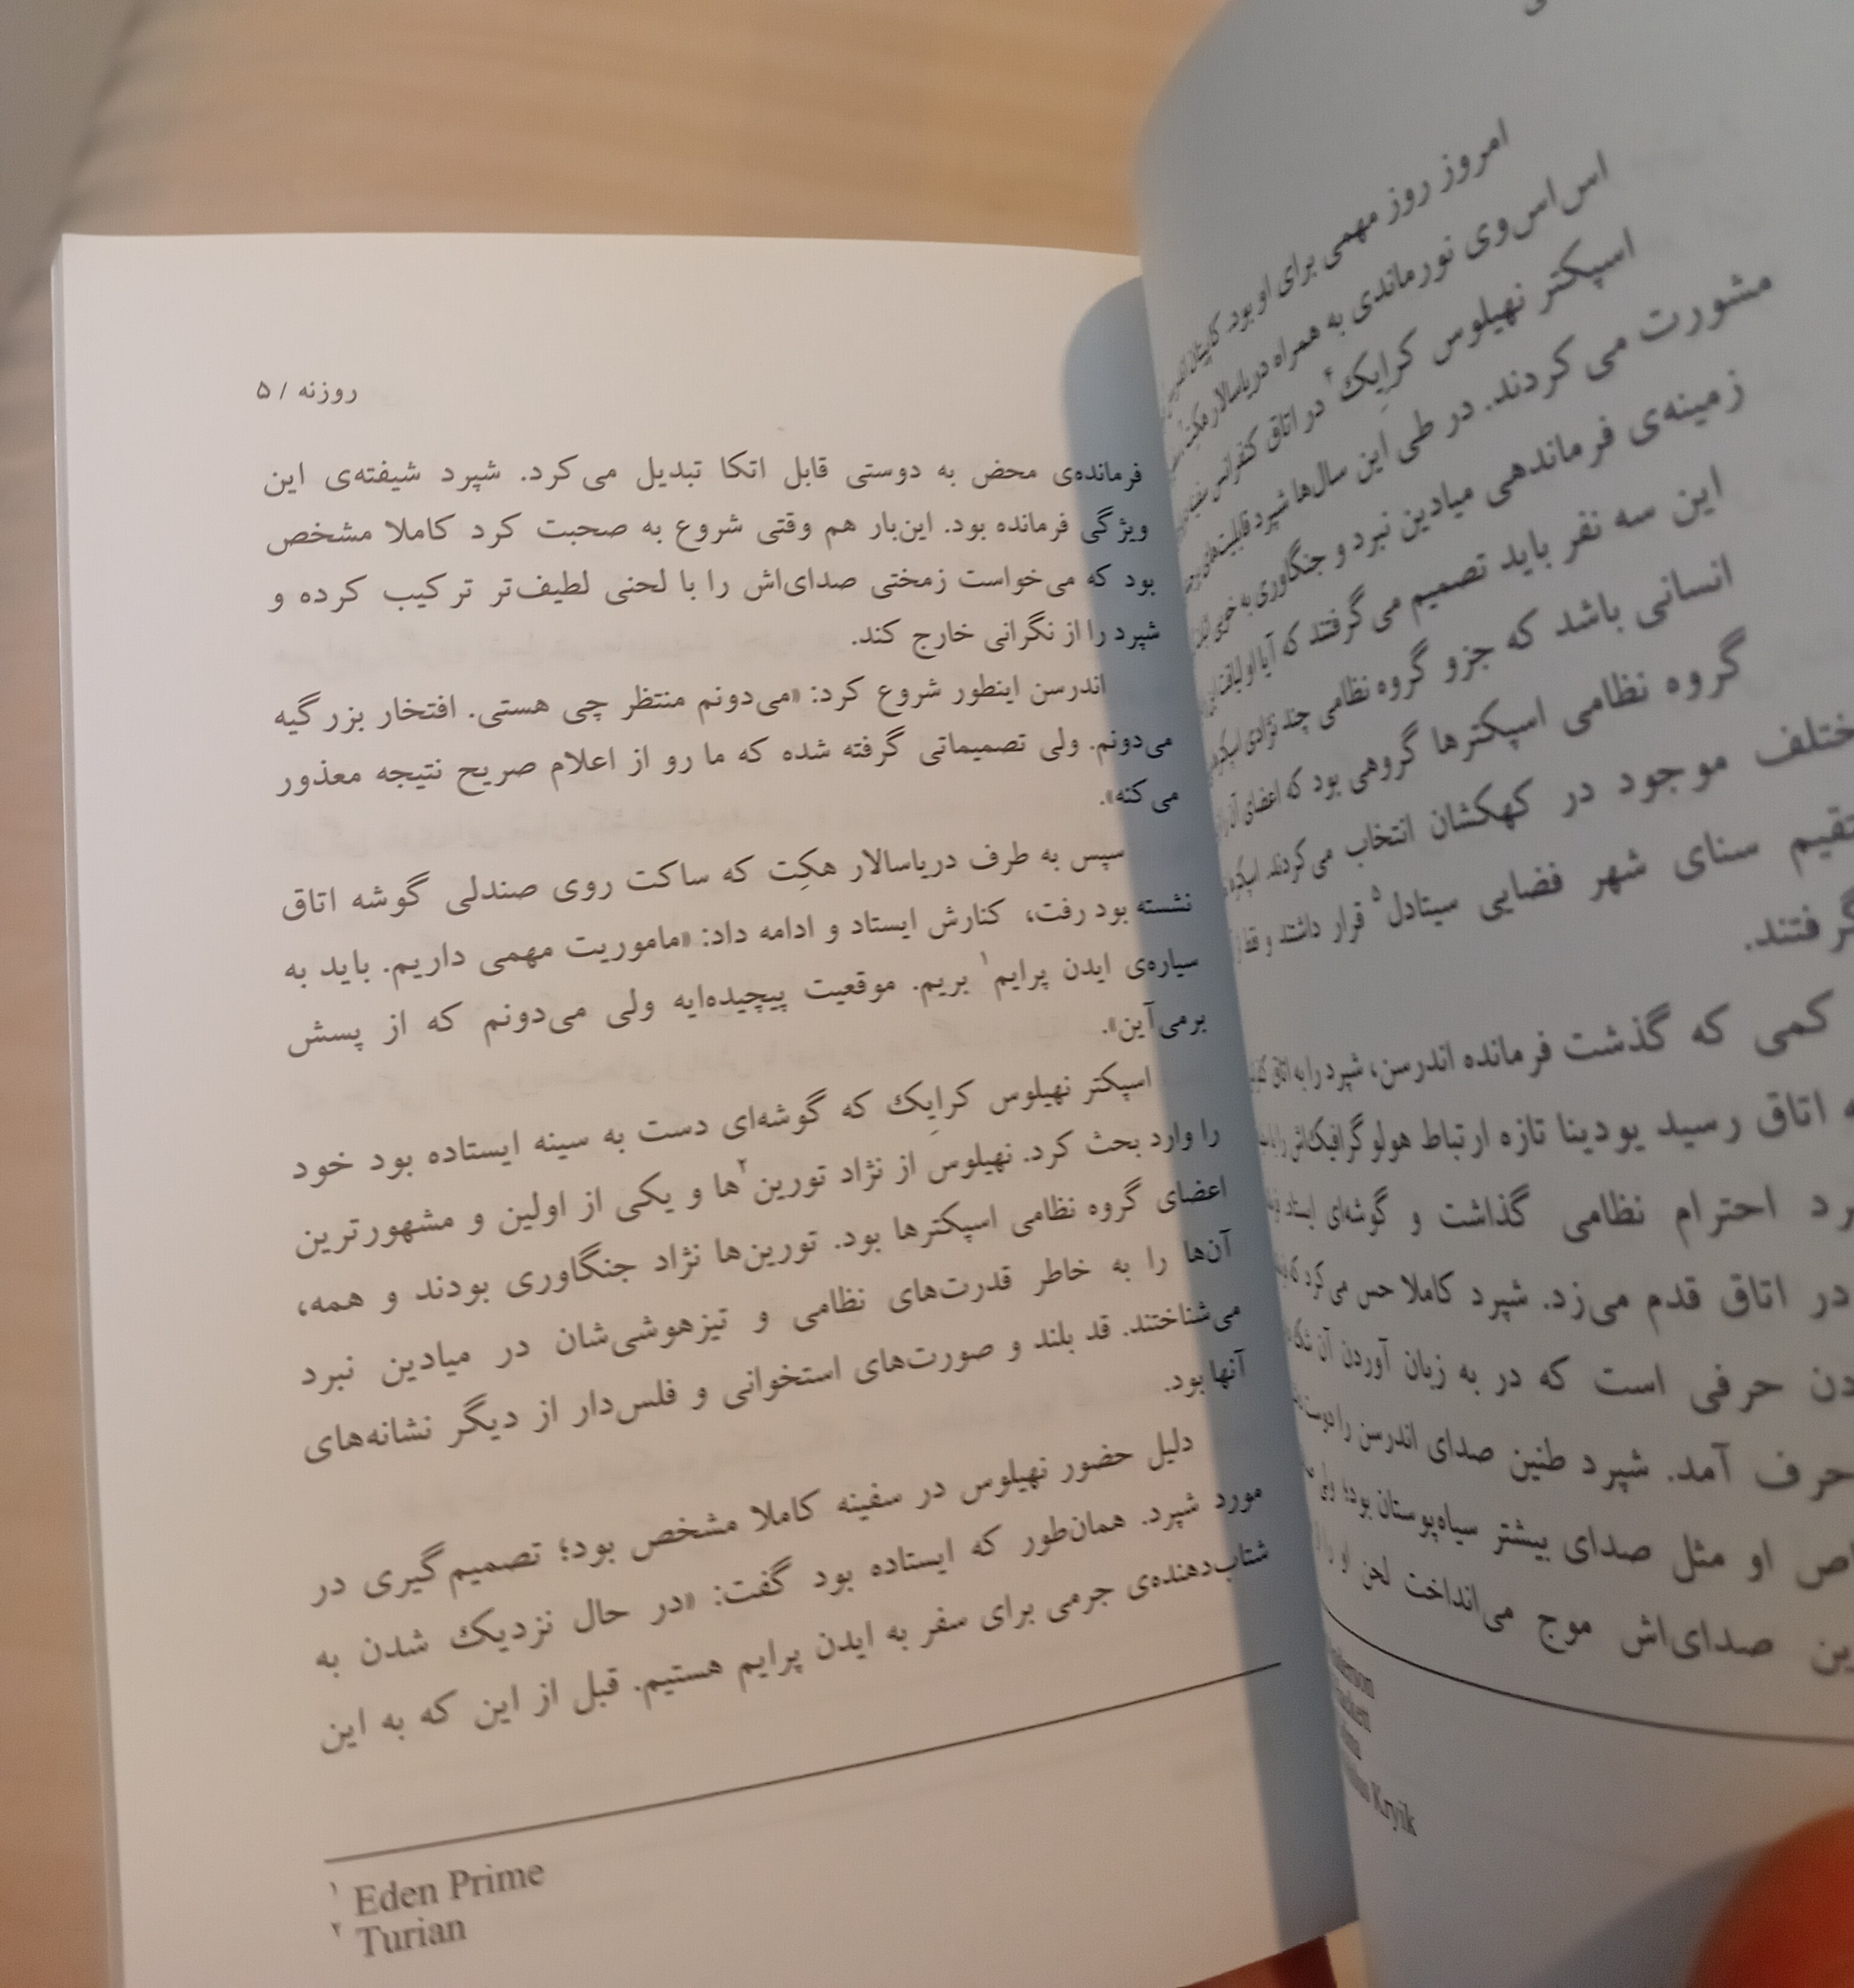 امروز روز مهمی برای او بود. کاپیتان
اس‌اس‌وی نورماندی به همراه دریاسالار هکت
اسپکتر نهیلوس کرایِک۴ در اتاق کنفرانس سفینه
مشورت می‌کردند. در طی این سال‌ها شپرد قابلیت‌های
زمینه‌ی فرماندهی میادین نبرد و جنگاوری به خوبی
این سه نفر باید تصمیم می‌گرفتند که آیا او لیاقت این
انسانی باشد که جزو گروه نظامی چند نژادی
گروه نظامی اسپکترها گروهی بود که اعضای آن
موجود در کهکشان انتخاب می‌کردند.
سنای شهر فضایی سیتادل۵ قرار داشتند و فقط از
کمی که گذشت فرمانده اندرسن، شپرد را به اتاق
اتاق رسید یودینا تازه ارتباط هولوگرافیک‌اش را
احترام نظامی گذاشت و گوشه‌ای ایستاد.
در اتاق قدم می‌زد. شپرد کاملا حس می‌کرد که
حرفی است که در به زبان آوردن آن شک
حرف آمد. شپرد طنین صدای اندرسن را دوست
او مثل صدای بیشتر سیاه‌پوستان بود؛ ولی
صدای‌اش موج می‌انداخت لحن او را از
Kryik
روزنه / ۵
فرمانده‌ی محض به دوستی قابل اتکا تبدیل می‌کرد. شپرد شیفته‌ی این
ویژگی فرمانده بود. این‌بار هم وقتی شروع به صحبت کرد کاملا مشخص
بود که می‌خواست زمختی صدای‌اش را با لحنی لطیف‌تر ترکیب کرده و
شپرد را از نگرانی خارج کند.
اندرسن اینطور شروع کرد: «می‌دونم منتظر چی هستی. افتخار بزرگیه
می‌دونم. ولی تصمیماتی گرفته شده که ما رو از اعلام صریح نتیجه معذور
می‌کنه».
سپس به طرف دریاسالار هکِت که ساکت روی صندلی گوشه اتاق
نشسته بود رفت، کنارش ایستاد و ادامه داد: «ماموریت مهمی داریم. باید به
سیاره‌ی ایدن پرایم۱ بریم. موقعیت پیچیده‌ایه ولی می‌دونم که از پسش
برمی‌آین».
اسپکتر نهیلوس کرایِک که گوشه‌ای دست به سینه ایستاده بود خود
را وارد بحث کرد. نهیلوس از نژاد تورین۲ها و یکی از اولین و مشهورترین
اعضای گروه نظامی اسپکترها بود. تورین‌ها نژاد جنگاوری بودند و همه،
آن‌ها را به خاطر قدرت‌های نظامی و تیزهوشی‌شان در میادین نبرد
می‌شناختند. قد بلند و صورت‌های استخوانی و فلس‌دار از دیگر نشانه‌های
آنها بود.
دلیل حضور نهیلوس در سفینه کاملا مشخص بود؛ تصمیم‌گیری در
مورد شپرد. همان‌طور که ایستاده بود گفت: «در حال نزدیک شدن به
شتاب‌دهنده‌ی جرمی برای سفر به ایدن پرایم هستیم. قبل از این که به این
۱ Eden Prime
۲ Turian